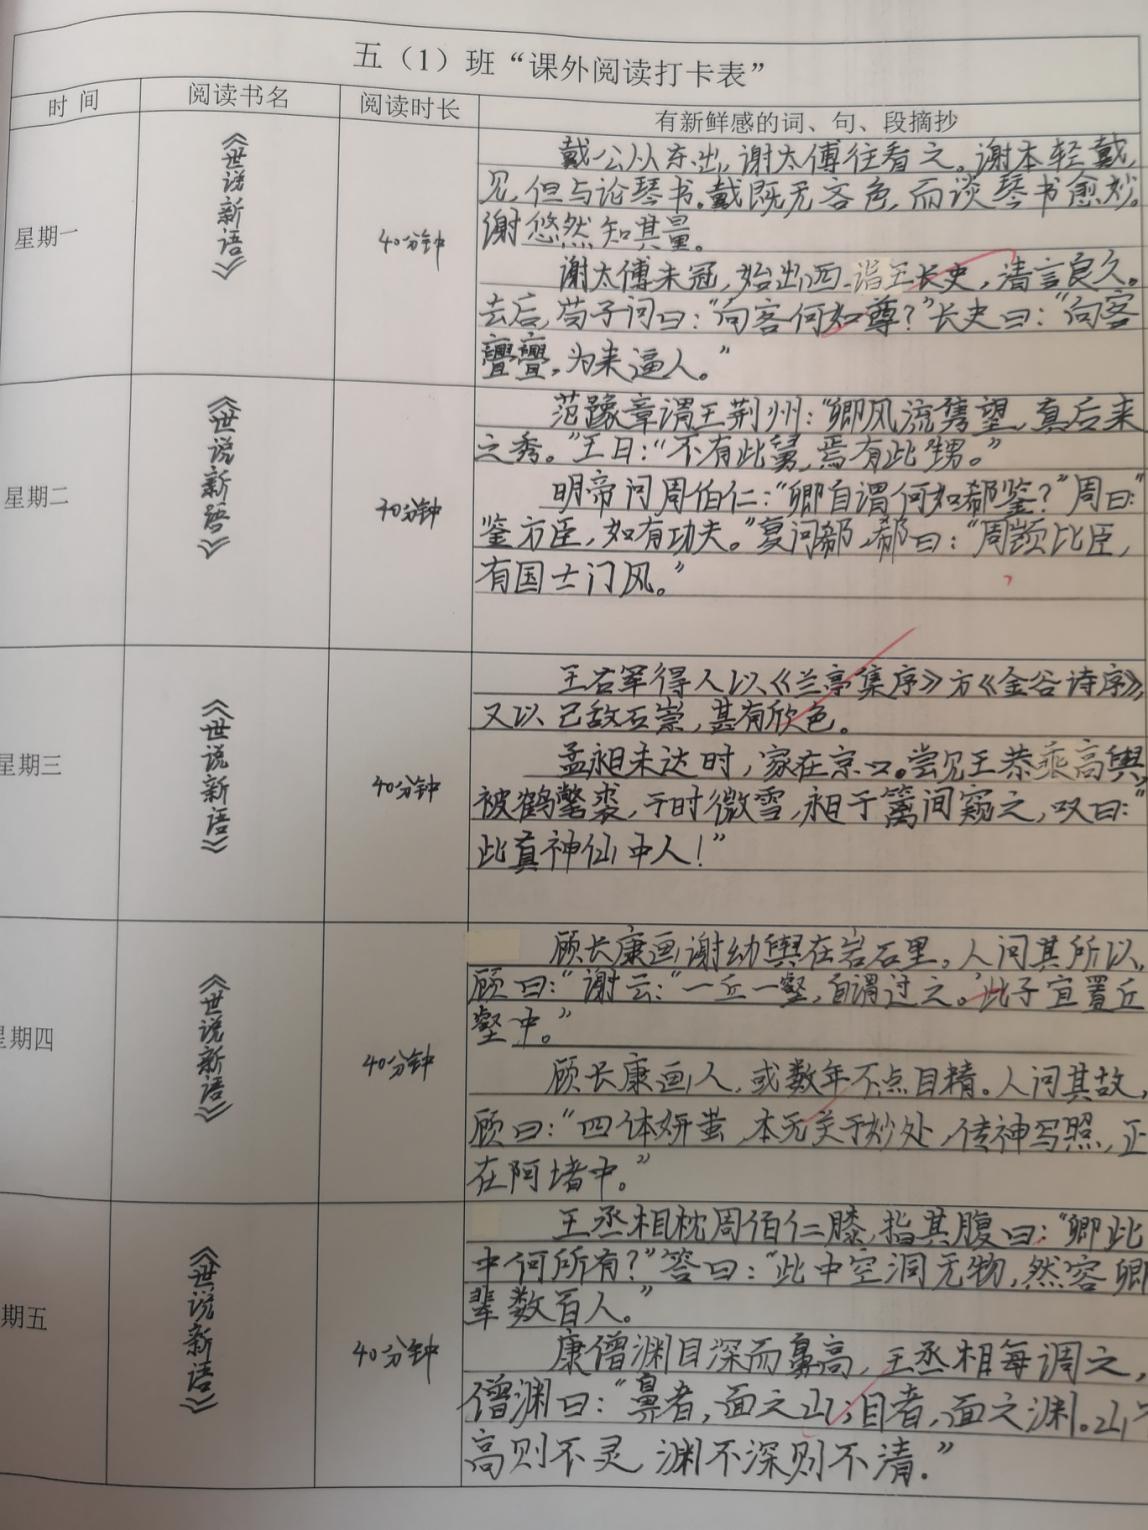 五（1）班“课外阅读打卡表”
时 间
阅读书名
阅读时长
有新鲜感的词、句、段摘抄
星期一
《世说新语》
40分钟
戴公从东出，谢太傅往看之。谢本轻戴，
见，但与论琴书。戴既无吝色，而谈琴书愈妙。
谢悠然知其量。
谢太傅未冠，始出西，诣王长史，清言良久。
去后，苟子问曰：“向客何如尊？”长史曰：“向客
亹亹，为来逼人。”
星期二
《世说新语》
40分钟
范豫章谓王荆州：“卿风流隽望，真后来
之秀。”王曰：“不有此舅，焉有此甥。”
明帝问周伯仁：“卿自谓何如郗鉴？”周曰：“
鉴方臣，如有功夫。”复问郗，郗曰：“周顗比臣，
有国士门风。”
星期三
《世说新语》
40分钟
王右军得人以《兰亭集序》方《金谷诗序》
又以己敌石崇，甚有欣色。
孟昶未达时，家在京口。尝见王恭乘高舆，
被鹤氅裘，于时微雪，昶于篱间窥之，叹曰：“
此真神仙中人！”
星期四
《世说新语》
40分钟
顾长康画谢幼舆在岩石里。人问其所以，
顾曰：“谢云：“一丘一壑，自谓过之。’此子宜置丘
壑中。”
顾长康画人，或数年不点目精。人问其故，
顾曰：“四体妍蚩，本无关于妙处，传神写照，正
在阿堵中。”
期五
《世说新语》
40分钟
王丞相枕周伯仁膝，指其腹曰：“卿此
中何所有？”答曰：“此中空洞无物，然容卿
辈数百人。”
康僧渊目深而鼻高，王丞相每调之，
僧渊曰：“鼻者，面之山；目者，面之渊。山不
高则不灵，渊不深则不清.”